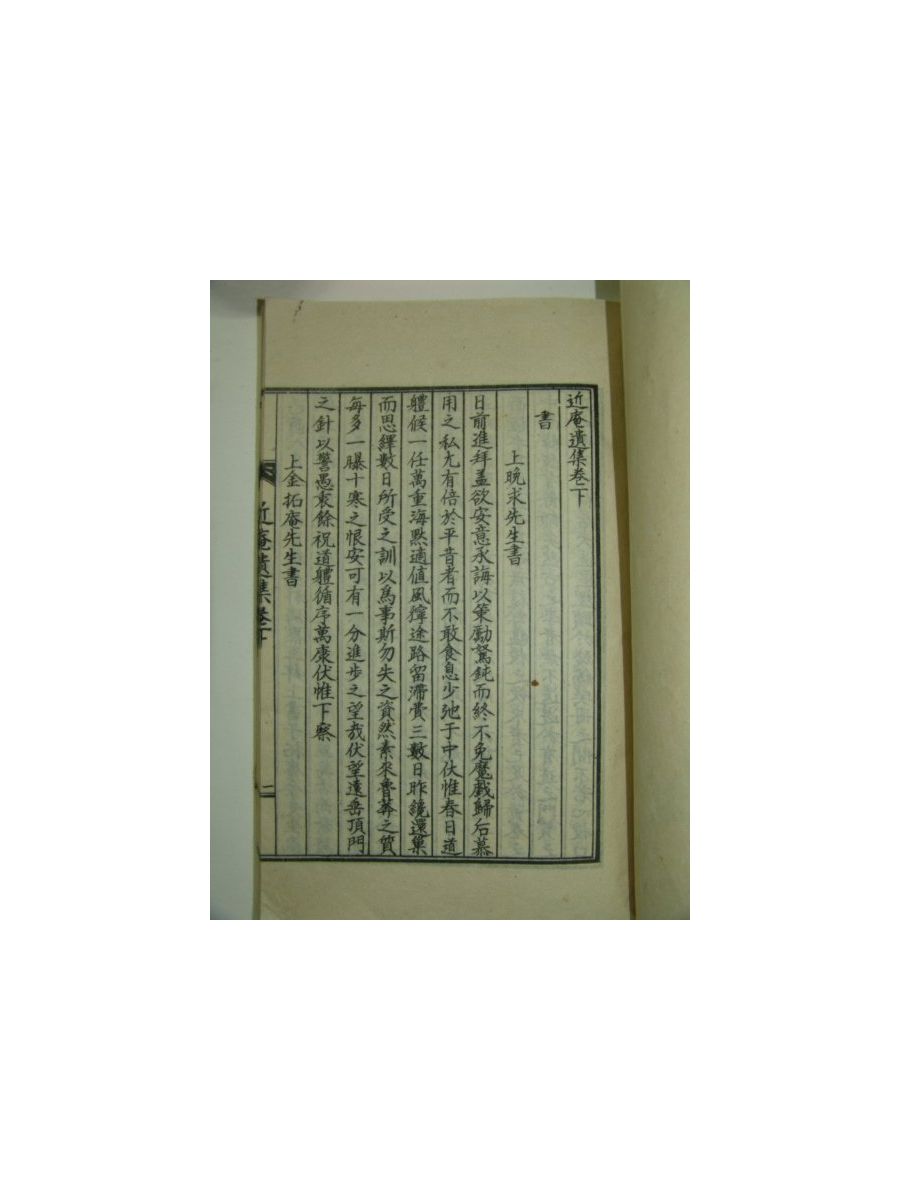 近庵遺集卷下
書
上晩求先生書
日前進拜盖欲安意承誨以策勵駑鈍而終不免魔戲歸后慕
用之私尤有倍於平昔者而不敢食息少弛于中伏惟春日道
軆候一任萬重海黙適值風獰途路留滯費三數日昨纔還巢
而思繹數日所受之訓以爲事斯勿失之資然素來鹵莽之質
每多一曝十寒之恨安可有一分進步之望哉伏望遠垂頂門
之針以警愚衷餘祝道軆循序萬康伏惟下察
上金拓庵先生書
近庵遺集卷下
二